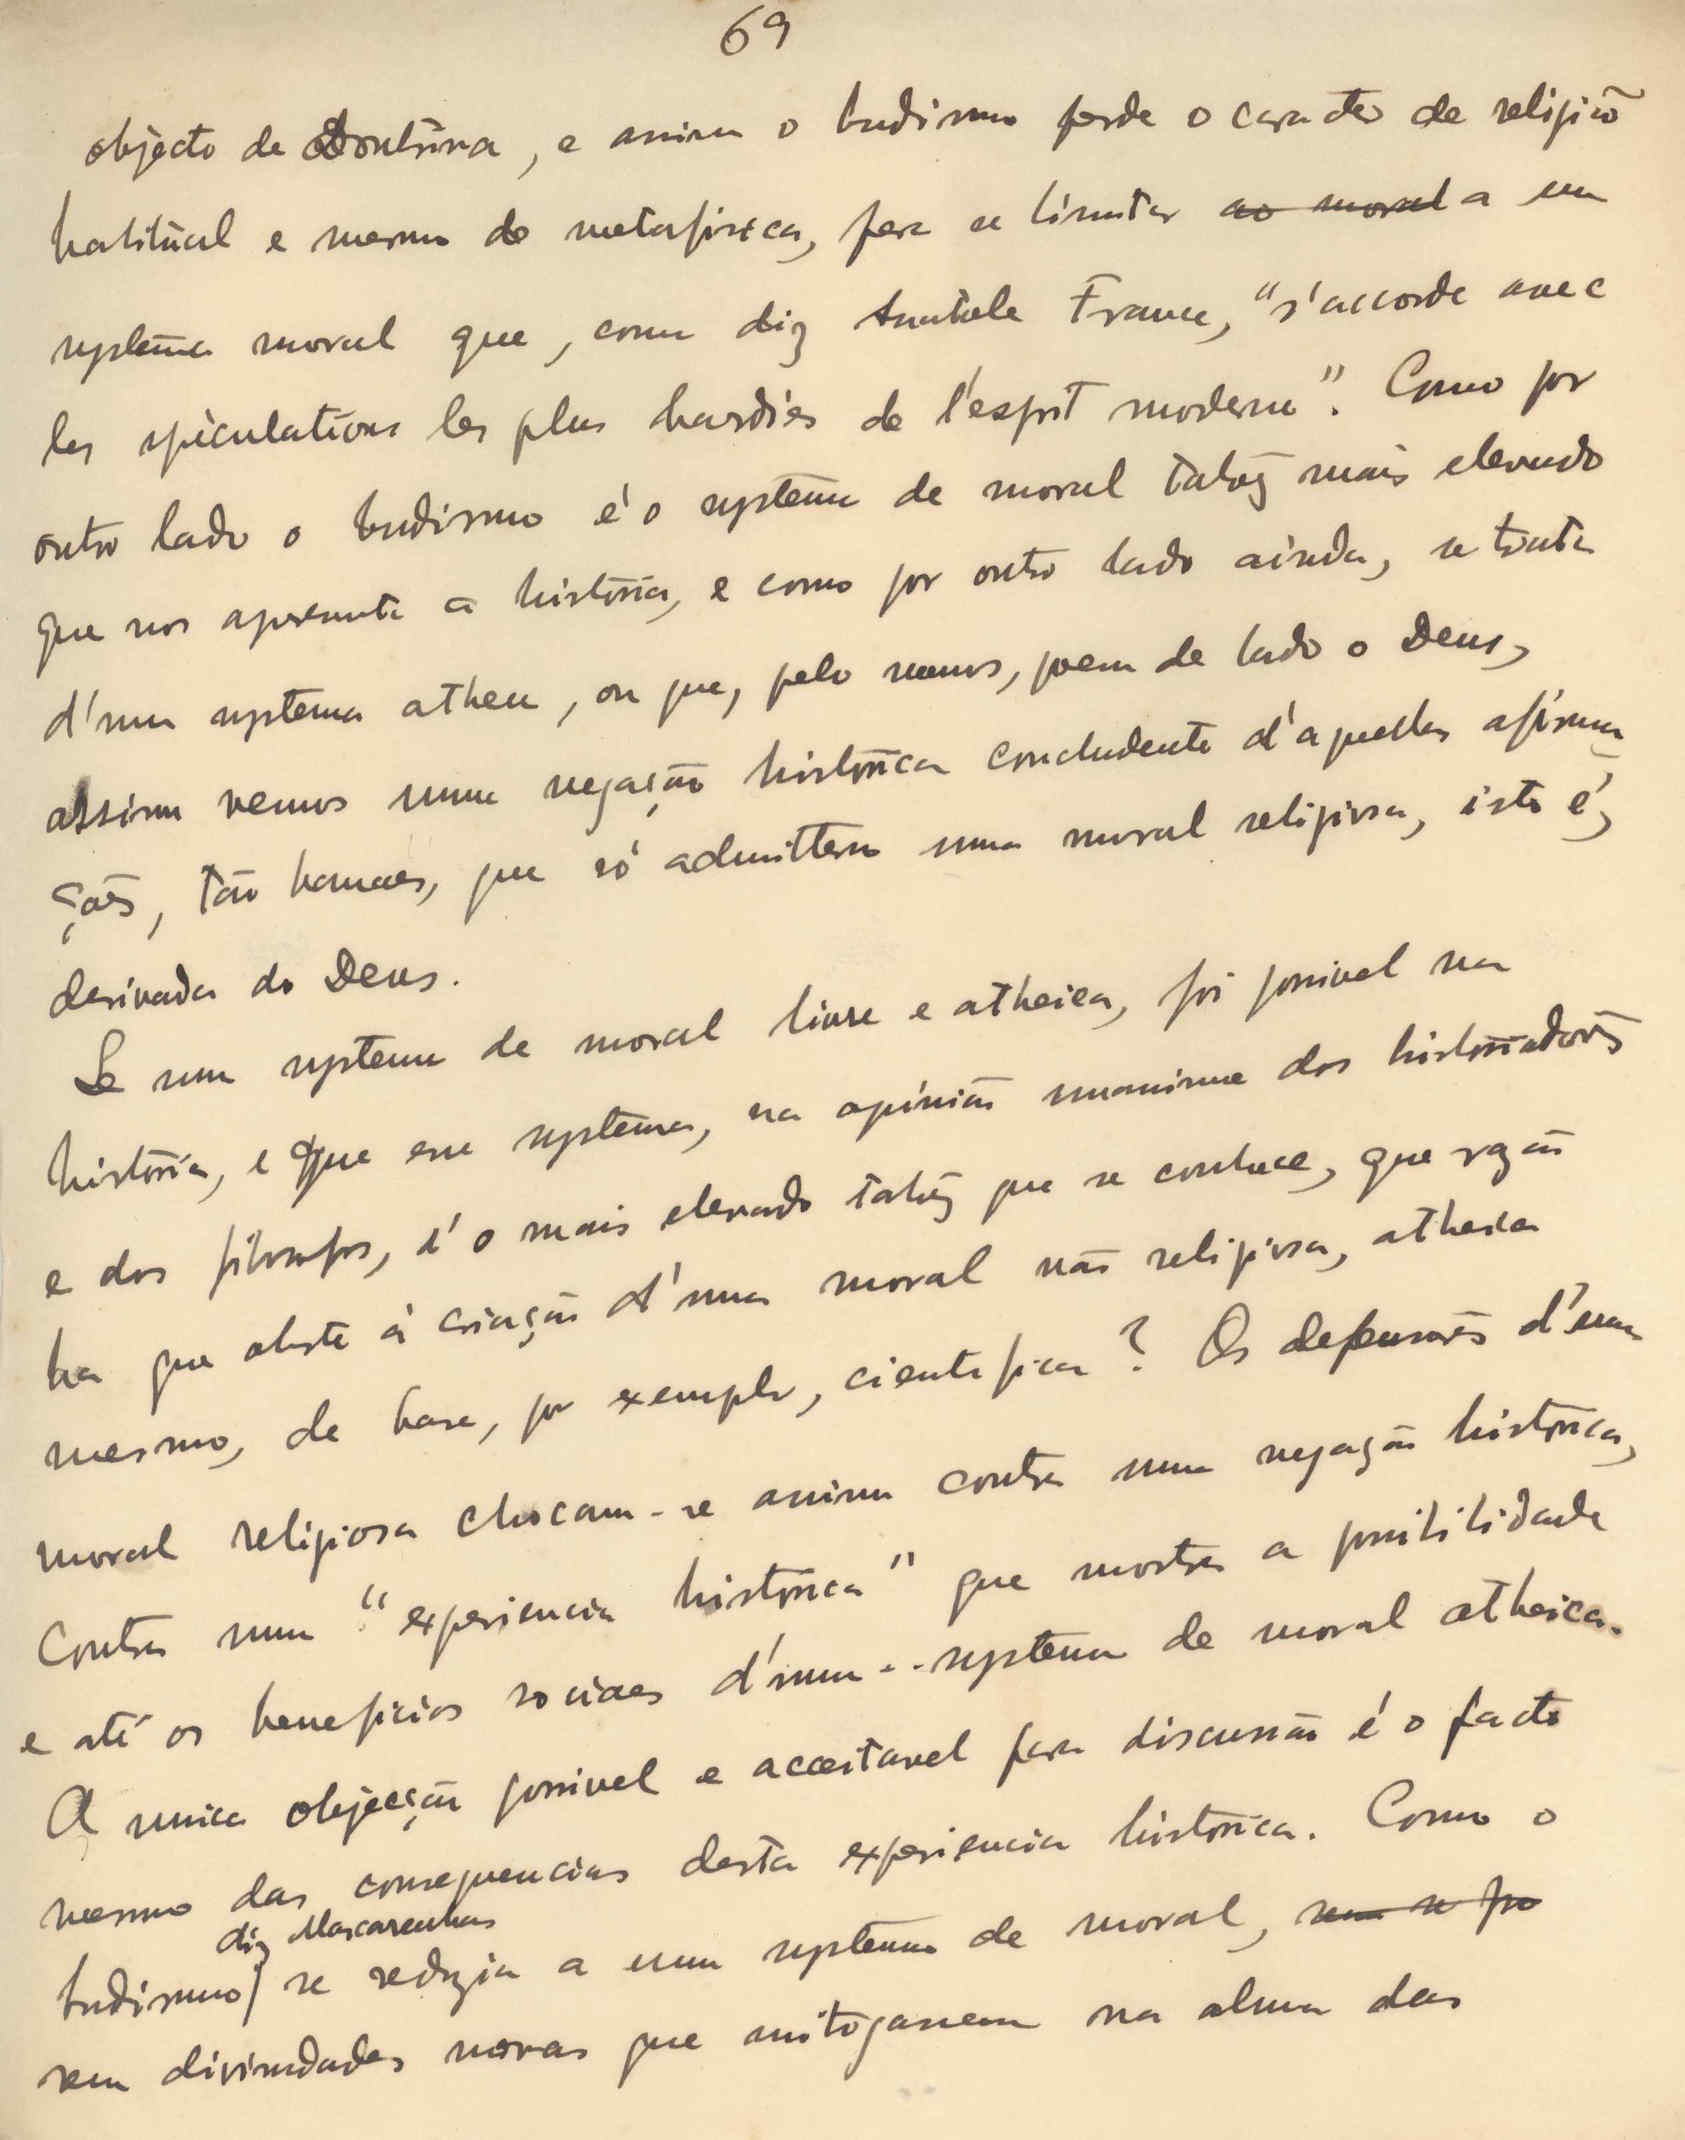 69
objecto de doutrina, e assim o budismo perde o caracter de religião
habitual e mesmo de metafisica, para se limitar ao moral a um
systema moral que, como diz Anatole France, "s'accorde avec
les spéculations les plus hardies de l'esprit moderne". Como por
outro lado o budismo é o systema de moral talvez mais elevado
que nos apresenta a história, e como por outro lado ainda, se trata
d'um systema atheu, ou que, pelo menos, poem de lado o Deus,
assim vemos uma negação histórica concludente d'aquellas afirma-
ções, tão banaes, que só admittem uma moral religiosa, isto é,
derivada do Deus.
Se um systema de moral livre e atheica, foi possivel na
história, e que esse systema, na opinião unanime dos historiadores
e dos filosofos, é o mais elevado talvez que se conhece, que razão
ha que obste á criação d'uma moral não religiosa, atheica
mesmo, de base, por exemplo, cientifica? Os defensores d'uma
moral religiosa chocam-se assim contra uma negação histórica,
contra uma "experiencia histórica" que mostra a possibilidade
e até os beneficios sociaes d'um systema de moral atheica.
A unica objecção possivel e acceitavel para discussão é o facto
mesmo das consequencias desta experiencia histórica. Como o
diz Mascarenhas
budismo se reduzia a um systema de moral, sem se po
sem divindades novas que mitogassem na alma das